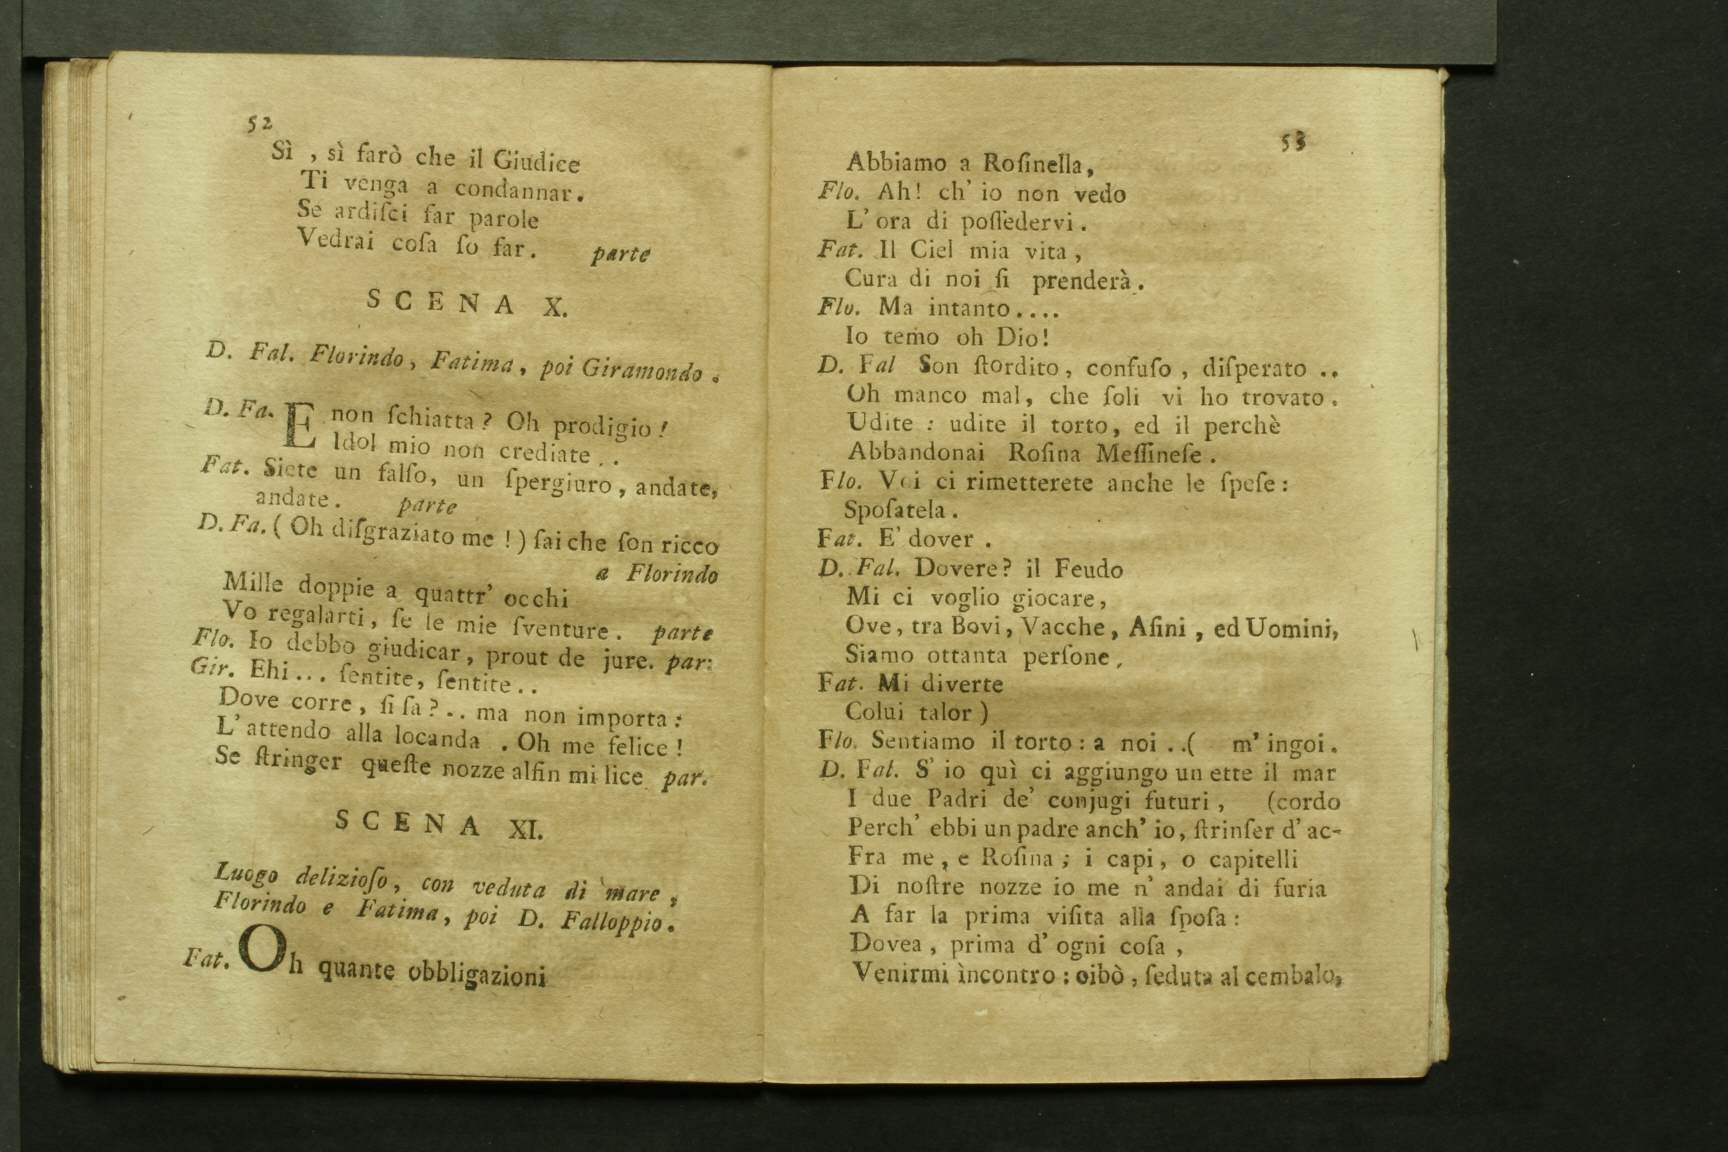 52
Sì , sì farò che il Giudice
Ti venga a condannar.
Se ardiſci far parole
Vedrai coſa ſo far. parte
SCENA X.
D. Fal. Florindo, Fatima, poi Giramondo.
D. Fa. E non ſchiatta? Oh prodigio!
Idol mio non crediate ..
Fat. Siete un falſo, un ſpergiuro, andate,
andate. parte
D. Fa. (Oh diſgraziato me!) ſai che ſon ricco
a Florindo
Mille doppie a quattr' occhi
Vo regalarti, ſe le mie ſventure. parte
Flo. Io debbo giudicar, prout de jure. par:
Gir. Ehi... ſentite, ſentite..
Dove corre, ſi ſa?.. ma non importa:
L' attendo alla locanda . Oh me felice!
Se ſtringer queſte nozze alfin mi lice par.
SCENA XI.
Luogo delizioſo, con veduta di mare,
Florindo e Fatima, poi D. Falloppio.
Fat. Oh quante obbligazioni
53
Abbiamo a Roſinella,
Flo. Ah! ch' io non vedo
L' ora di poſſedervi.
Fat. Il Ciel mia vita,
Cura di noi ſi prenderà.
Flo. Ma intanto....
Io temo oh Dio!
D. Fal Son ſtordito, confuſo, diſperato ..
Oh manco mal, che ſoli vi ho trovato.
Udite : udite il torto, ed il perchè
Abbandonai Roſina Meſſineſe.
Flo. Voi ci rimetterete anche le ſpeſe:
Spoſatela.
Fat. E' dover .
D. Fal. Dovere? il Feudo
Mi ci voglio giocare,
Ove, tra Bovi, Vacche, Aſini, ed Uomini,
Siamo ottanta perſone,
Fat. Mi diverte
Colui talor)
Flo. Sentiamo il torto: a noi ..( m' ingoi.
D. Fal. S' io quì ci aggiungo un ette il mar
I due Padri de' conjugi futuri, (cordo
Perch' ebbi un padre anch' io, ſtrinſer d' ac-
Fra me, e Roſina; i capi, o capitelli
Di noſtre nozze io me n' andai di furia
A far la prima viſita alla ſpoſa:
Dovea, prima d' ogni coſa,
Venirmi ìncontro: oibò, ſeduta al cembalo,